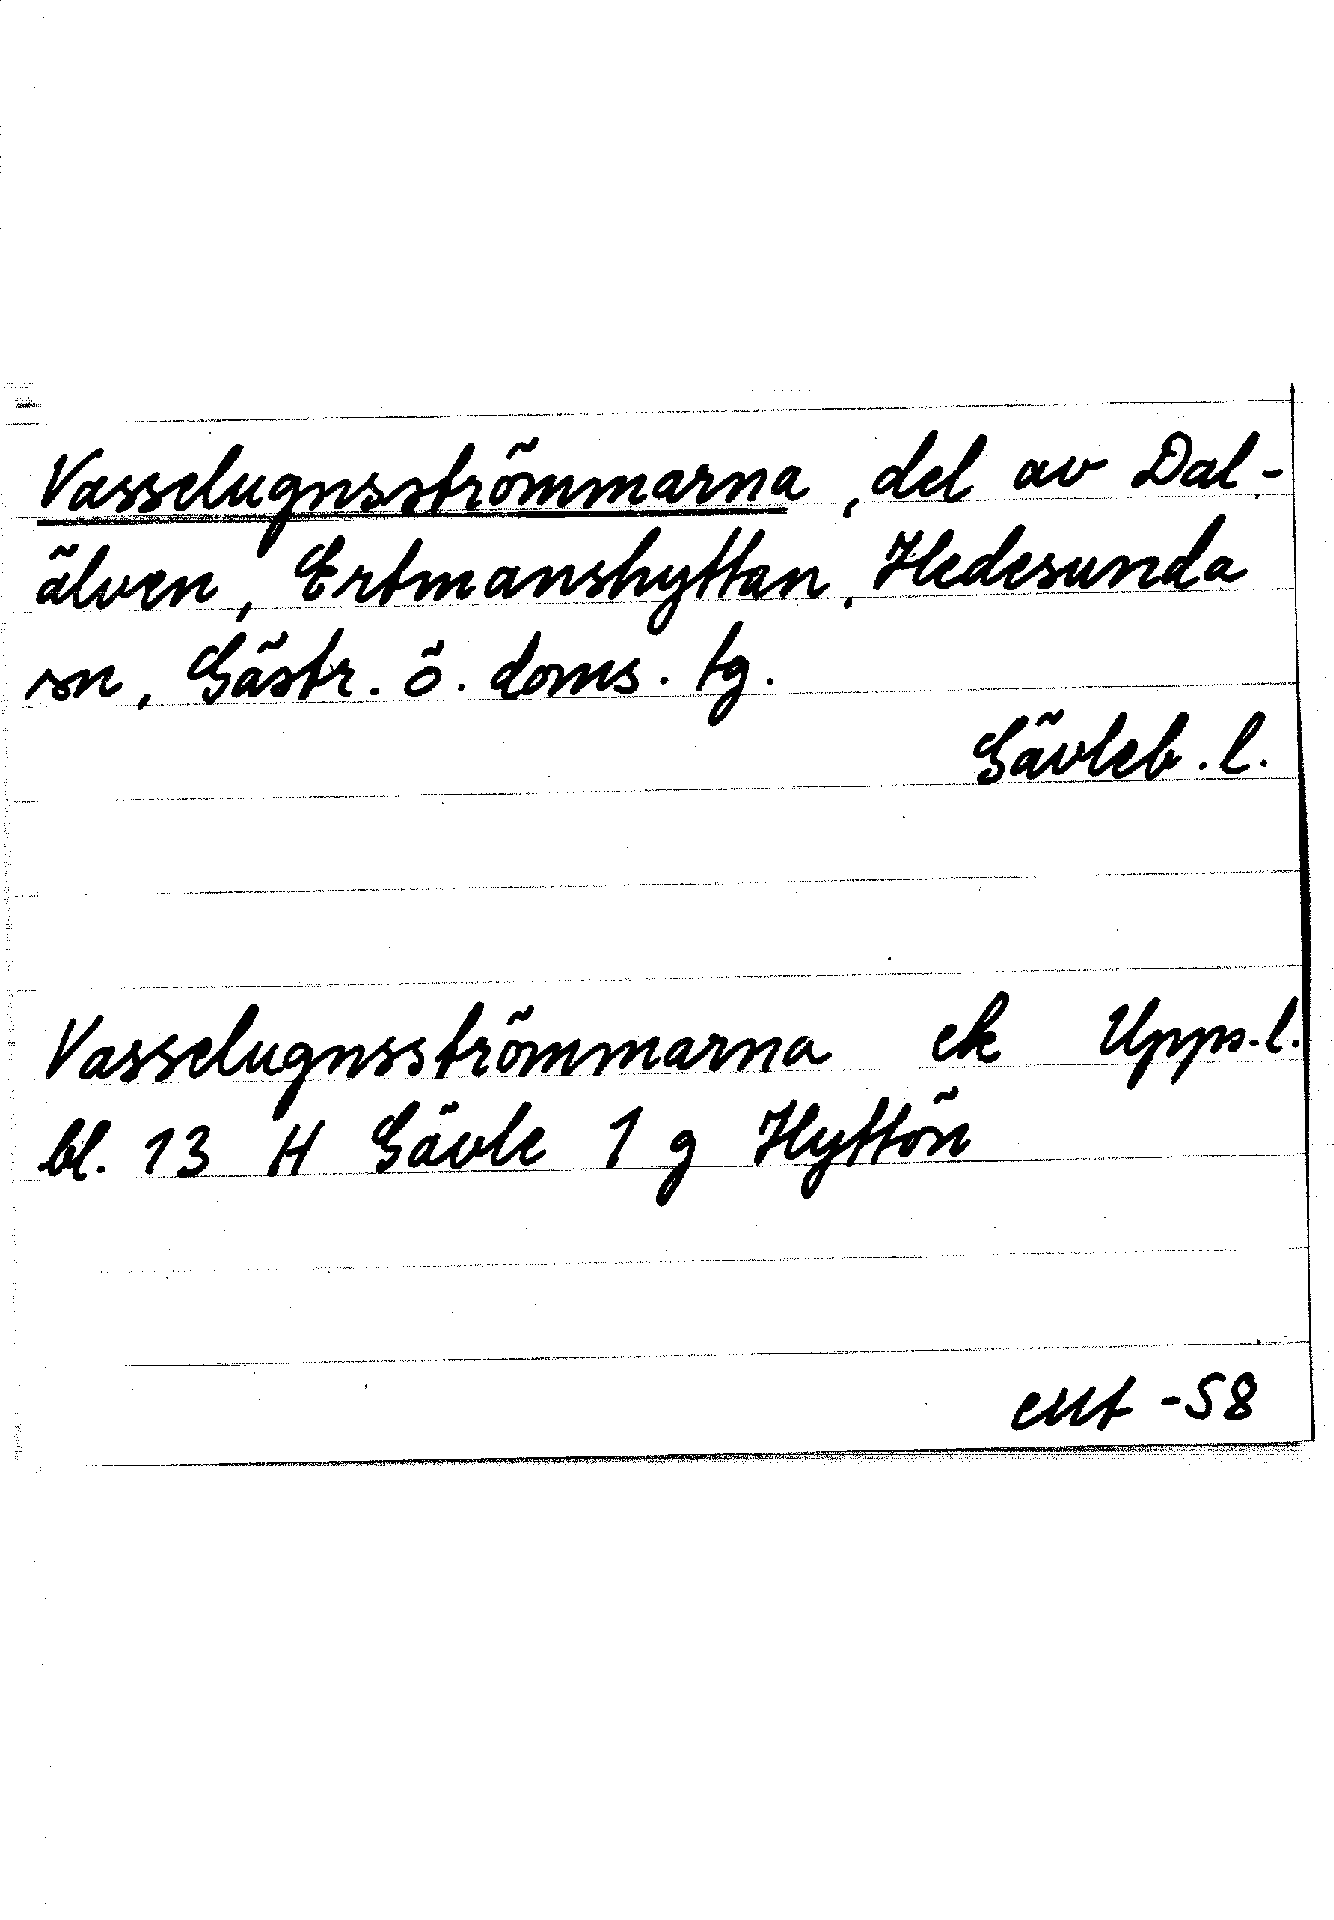 Vasselugnsströmmarna, del av Dal-
älven, Ertmanshyttan, Hedesunda
sn, Gästr. ö. doms. tg.
Gävleb. l.
Vasselugnsströmmarna ek Upps. l.
bl. 13 H Gävle 1 g Hyttön
-58